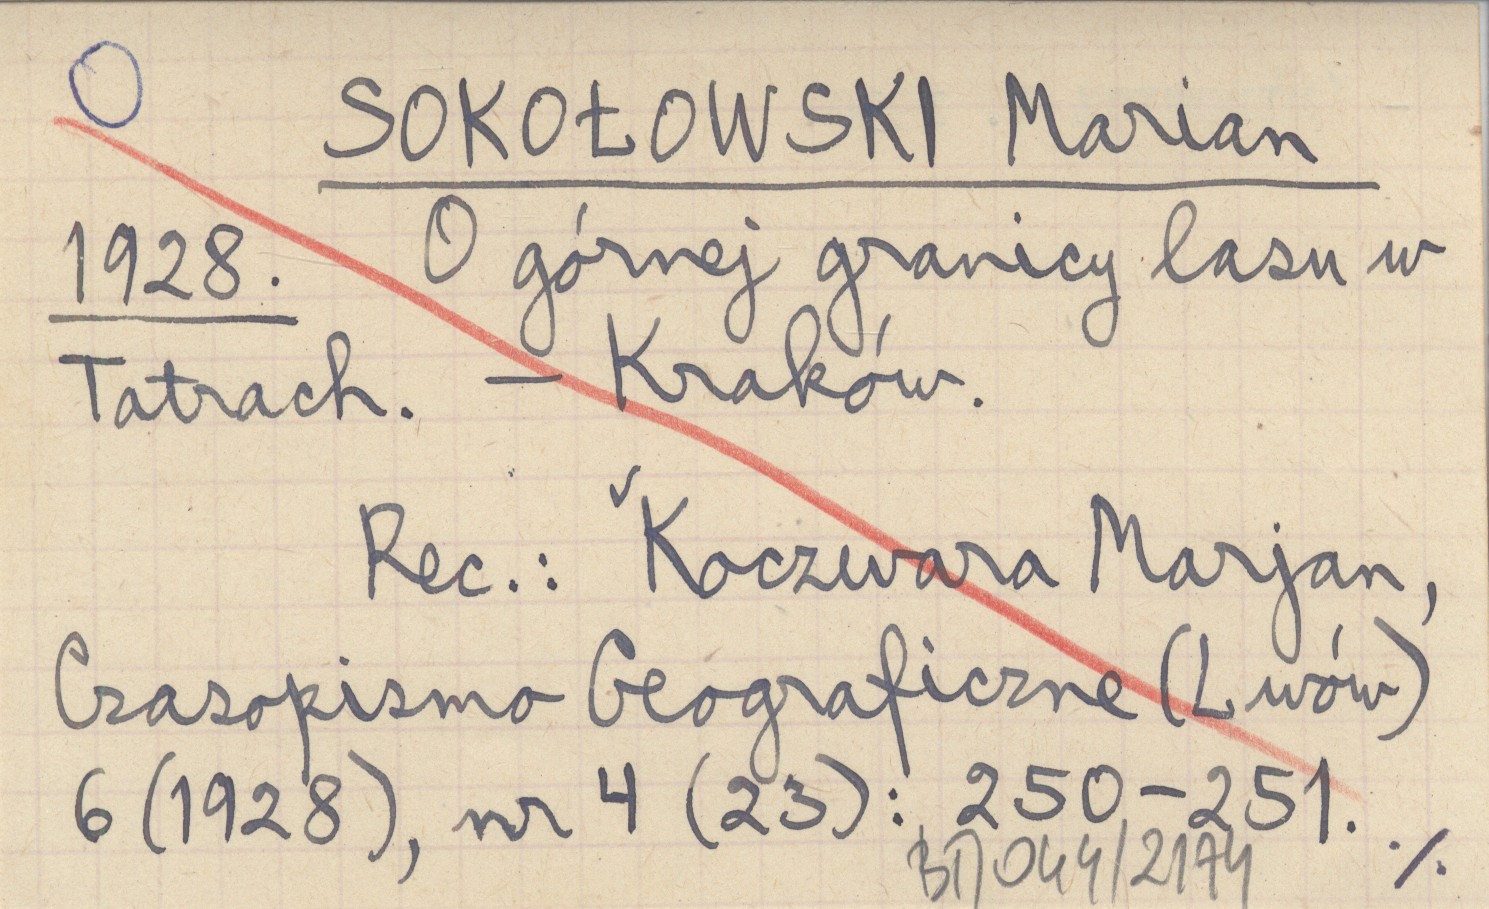 SOKOŁOWSKI Marian
1928. O górnej granicy lasu w
Tatrach. — Kraków.
Rec.: Koczwara Marjan,
Czasopismo Geograficzne (Lwów)
6 (1928), nr 4 (23): 250–251.
044/2174 ./.